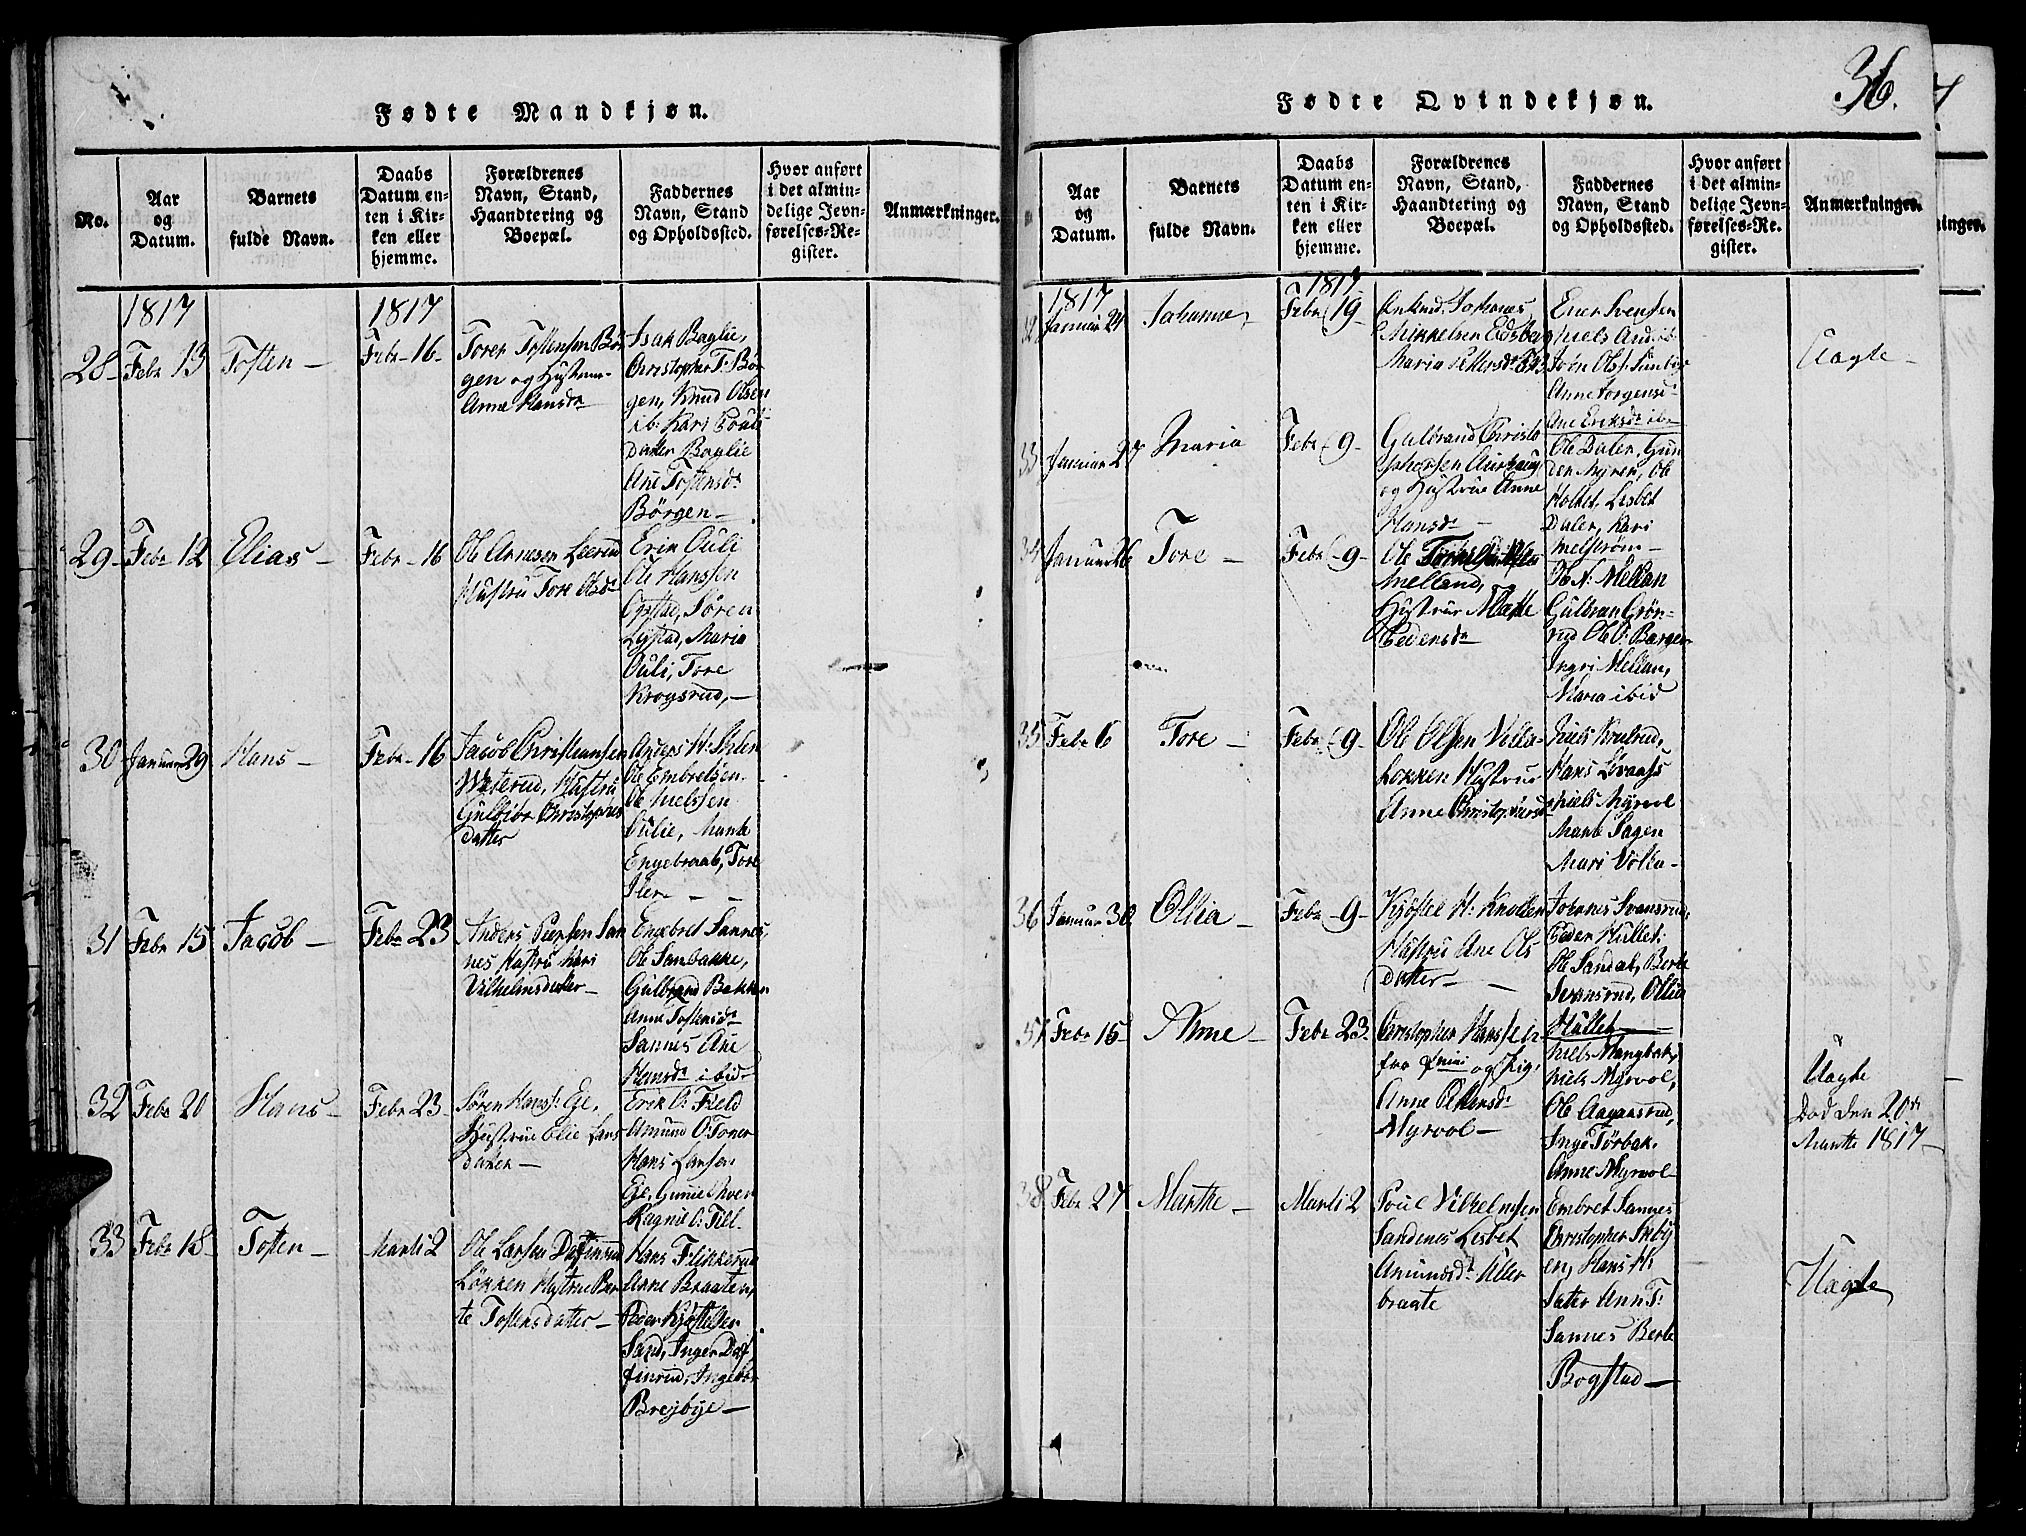 Fødte Mandkjøn.
No.
Aar
og
Datum.
Barnets
fulde Navn.
Daabs
Datum en-
ten i Kir-
ken eller
hjemme.
Forældrenes
Navn, Stand,
Haandtering og
Boepæl.
Faddernes
Navn, Stand
og Opholdsted.
Hvor anført
i det almin-
delige Jevn-
førelses-Re-
gister.
Anmærkninger.
1817
1817
28 Febr 13 Tosten
Febr 16
Torer Tostensen Bør
gen og Hustrue
Anne Hansdr
Isak Baglie,
Christopher T: Bør
gen, Knud Olsen
ib: Kari Pouls
datter Baglie
Ane Tostensdr
Børgen
29 Febr 12 Elias
Febr 16
Ole Arnesen Leerud
Hustru Tore Olsdr
Erik Ouli
Ole Hanssen
Opstad, Søren
Lystad, Maria
Ouli, Tore
Krogsrud,
30 Januar 29 Hans
Febr 16
Jacob Christiansen
Hustru
Gulbior Christophers
datter
Anders H:
Ole Embretsen
Ole Nielssen
Oulie, Marte
Engebraat, Tore
Iler
31 Febr 15 Jacob
Febr 23
Anders Persen San
nes Hustru Kari
Vilhelmsdatter
Engebret Sannes
Ole Sanbakke,
Gulbrand Bakken
Anne Tostensdr
Sannes Ane
Hansdr ibid
32 Febr 20 Hans
Febr 23
Søren Hanss: Ege,
Hustrue Elie Lars
datter
Erik O: Field
Amund O: Toner
Hans Larsen
Ege, Gunild
Ragnil O: Till
33 Febr 18 Tosten
Martii 2
Ole Larsen Dafinrud
Løkken Hustrue Ber
te Tostensdatter
Hans Flikkerud
Anne Braaten,
Peder Kjøstelsen
Sand, Inger Daf
finrud, Ingebor
Brejbye
36.
Fødte Qvindekjøn.
Aar
og
Datum.
Barnets
fulde Navn.
Daabs
Datum en-
ten i Kir-
ken eller
hjemme.
Forældrenes
Navn, Stand,
Haandtering og
Boepæl.
Faddernes
Navn, Stand
og Opholdssted.
Hvor anført
i det almin-
delige Jevn-
førelses-Re-
gister.
Anmærkninger.
1817
1817
32 Januar 24 Johanne
Febr 19
Johannes
Mikkelsen Edsberg
Maria Pettersdr
Ener Svensen
Niels
Joen Olss:
Anne Jorgensd
Ane Eriksdr ibm
Uægte
33 Januar 27 Maria
Febr 9
Gulbrand Christo
phersen Aurhaug
og Hustrue Anne
Hansdr
Ole Daler, Gun
der Myrer, Ole
Holter, Lisbet
Daler, Kari
Melstrøm
34 Januar 26 Tore
Febr 9
Ole
Melland,
Hustrue Marte
Pedersdr
Ole N: Mellan
Gulbran Grøn-
rud Ole O: Barger
Ingri Mellan,
Maria ibid
35 Febr 6 Tore
Febr 9
Ole Olsen
Løkken Hustrue
Anne Christophersd
Niels Krulrud,
Hans Løvaass
Niels Myrvol
Marte Sagen
Mari Volla
36 Januar 30 Ollia
Febr 9
Kjøstel H: Knollen
Hustru Ane Ols
datter
Johanes Svansrud,
Peder Hullet:
Ole Sandal, Berte
Svansrud, Ollia
Hullet
37 Febr 15 Anne
Febr 23
Christopher Hanssen
fra og Pig:
Anne Pedersdr
Myrvol
Niels Mangbak,
Niels Myrvol,
Ole Aagaarud,
Inge Tørbak,
Anne Myrvol
Uægte
Død den 20de
Martii 1817
38 Febr 24 Marthe
Martii 2
Poul Vilhelmsen
Sandenes Lisbet
Amundsdr Uller
bragte
Embret Sannes
Christopher Skby
en, Hans H:
Sæter Ann T:
Sannes Berte
Bogstad
Uægte
ninger.